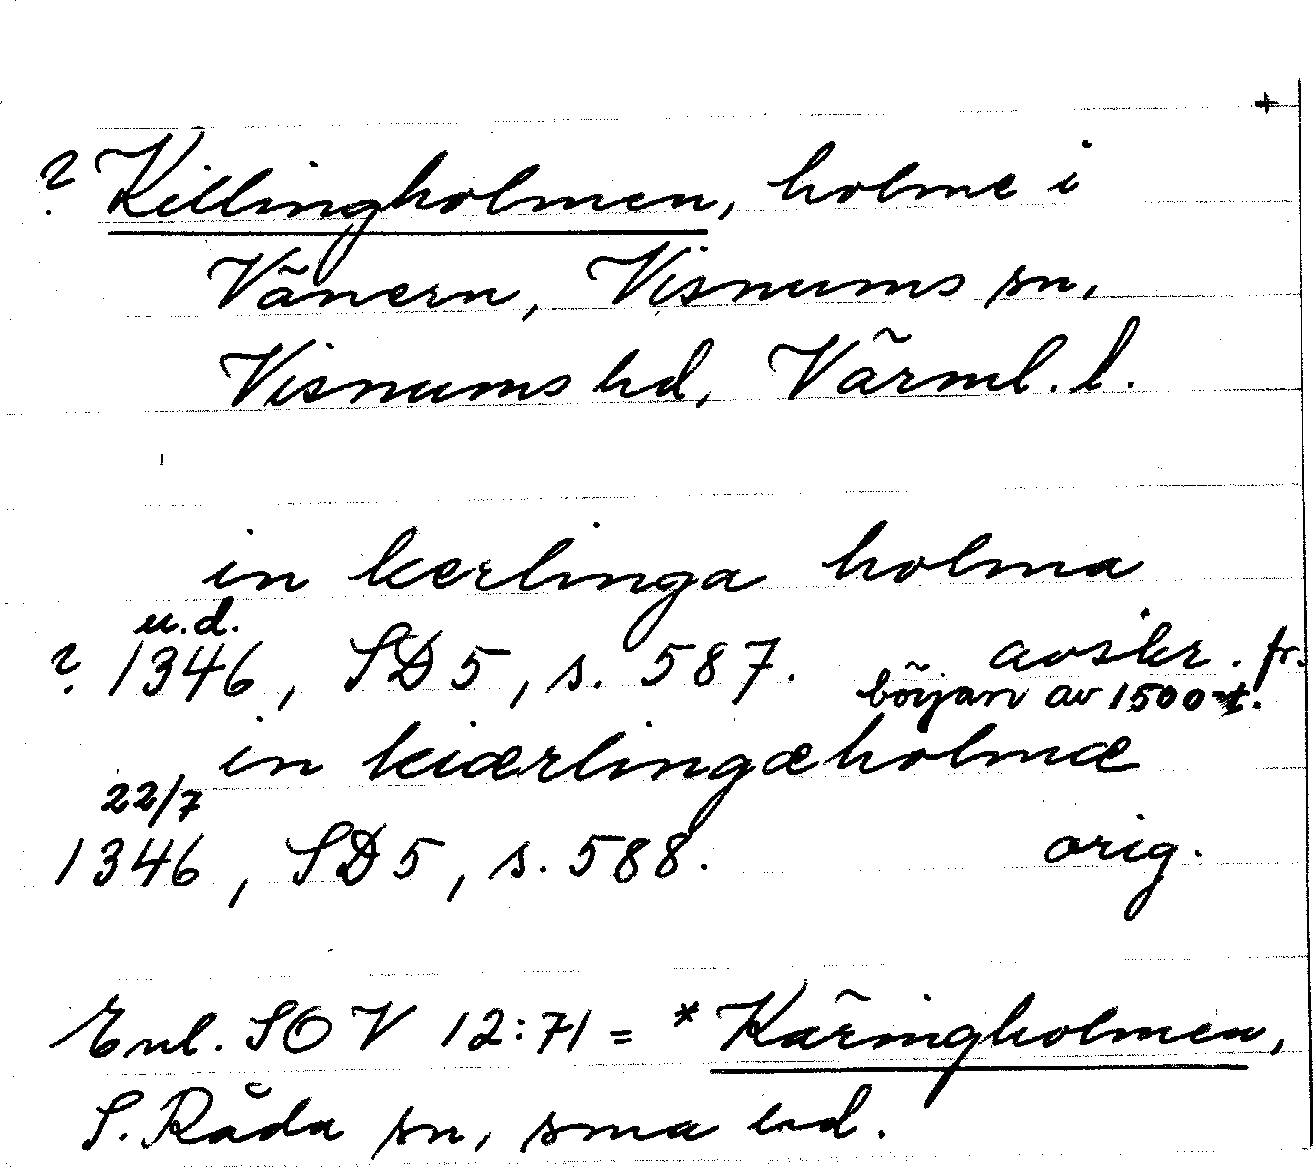 +
? Killingholmen, holme i
Vänern, Visnums sn,
Visnums hd, Värml. l.
in kerlinga holma
u.d.
? 1346, SD 5, s. 587. avskr. fr.
början av 1500-t.
in kiærlingæholmæ
22/7
1346, SD 5, s. 588. orig.
Enl. SOV 12:71 = *Käringholmen,
S. Råda sn, sma hd.